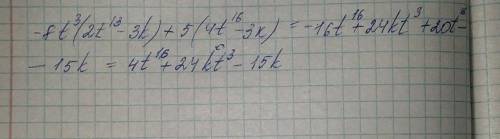 -8t³(2t¹³-3k)+5(4t¹⁶-3k)=-16t¹⁶+24kt³+20t¹⁶-
-15k = 4t¹⁶+24kt³-15k